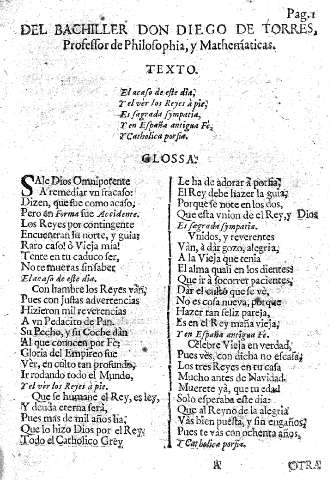 Pag.1
DEL BACHILLER DON DIEGO DE TORRES,
Professor de Philosophia, y Mathematicas.
TEXTO.
El acaso de este dia,
Y el vèr los Reyes à pie,
Es sagrada sympatia,
Y en España antigua Fè,
Y Catholica porfia.
GLOSSA.
SAle Dios Omnipotente
A remediar vn fracaso:
Dizen, que fue como acaso,
Pero en Forma fue Accidente.
Los Reyes por contingente
Encuentran su norte, y guia:
Raro caso! ò Vieja mia!
Tente en tu caduco ser,
No te mueras sin saber
El acaso de este dia.
Con hambre los Reyes vàn,
Pues con justas advertencias
Hizieron mil reverencias
A vn Pedacito de Pan.
Su Pecho, y su Coche dàn
Al que conocen por Fè;
Gloria del Empireo fue
Vèr, en culto tan profundo,
Ir rodando todo el Mundo,
Y el vèr los Reyes à pie.
Que se humane el Rey, es ley,
Y deuda eterna serà,
Pues mas de mil años hà,
Que lo hizo Dios por el Rey:
Todo el Catholico Grey
Le ha de adorar à porfia;
El Rey debe hazer la guia;
Porque se note en los dos,
Que esta vnion de el Rey, y Dios
Es sagrada sympatia.
Vnidos, y reverentes
Vàn, à dàr gozo, alegria,
A la Vieja que tenia
El alma quali en los dientes:
Que ir à socorrer pacientes,
Dàr el culto que se vè,
No es cosa nueva, porque
Hazer tan feliz pareja,
Es en el Rey maña vieja,
Y en España antigua Fè.
Cèlebre Vieja en verdad,
Pues vès, con dicha no escasa,
Los tres Reyes en tu casa
Mucho antes de Navidad.
Muerete yà, que tu edad
Solo esperaba este dia:
Que al Reyno de la alegria
Vàs bien puesta, y sin engaños,
Pues te vàs con ochenta años,
Y Catholica porfia.
A
OTRA